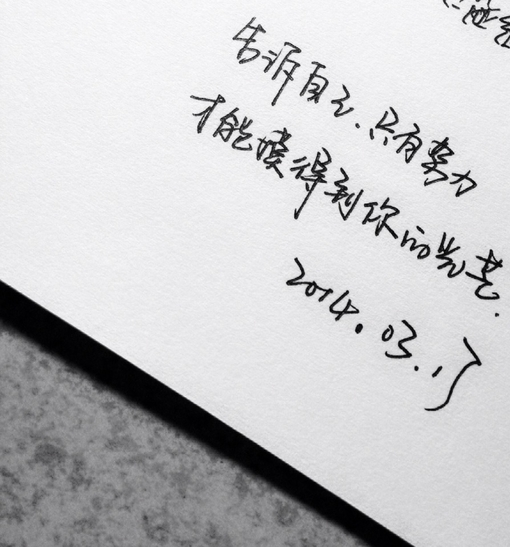 告诉自己,只有努力
才能得到你的
2014.03.15